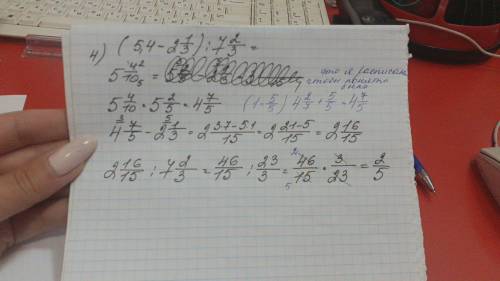 4) (5,4 - 2 1/3) : 7 2/3 =
5 4²/10₅ =
это я расписала
чтобы понятно
было
5 4/10 = 5 2/5 = 4 7/5 (1 = 5/5) 4 2/5 + 5/5 = 4 7/5
4 ³7/5 - 2 ⁵1/3 = 2 3·7-5·1/15 = 2 21-5/15 = 2 16/15
2 16/15 : 7 2/3 = 46/15 : 23/3 = ²46/15₅ · 3/23 = 2/5